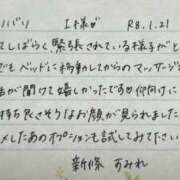 I様 R8.1.21
てしばらく、緊張されている様子がと
でもベッドに移動してからのマッサージ
が聞けて嬉しかったです 仰向けに
持ち良さそうなお顔が見られました
メしたあのオプションも試してみてください
新條 すみれ